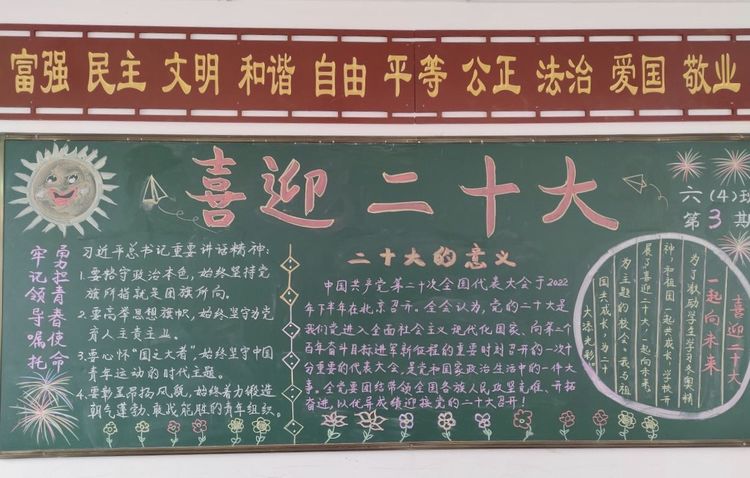 富强 民主 文明 和谐 自由 平等 公正 法治 爱国 敬业
喜迎二十大
六(4)班
第3期
勇担青春使命
牢记领导嘱托
习近平总书记重要讲话精神:
1.要恪守政治本色,始终坚持党
旗所指就是团旗所向。
2.要高举思想旗帜,始终坚守为党
育人主责主业。
3.要心怀“国之大者”,始终坚守中国
青年运动的时代主题。
4.要彰显昂扬风貌,始终着力锻造
朝气蓬勃、敢战能胜的青年组织。
二十大的意义
中国共产党第二十次全国代表大会于2022
年下半年在北京召开。全会认为,党的二十大是
我们党进入全面社会主义现代化国家、向第二个
百年奋斗目标进军新征程的重要时刻召开的一次十
分重要的代表大会,是党和国家政治生活中的一件大
事。全党要团结带领全国各族人民攻坚克难、开拓
奋进,以优异成绩迎接党的二十大召开!
喜迎二十大
一起向未来
为了激励学生学习冬奥精
神,和祖国一起共成长,学校开
展了喜迎二十大,一起向未来
为主题的校会,我与祖
国共成长,为二十
大添光彩